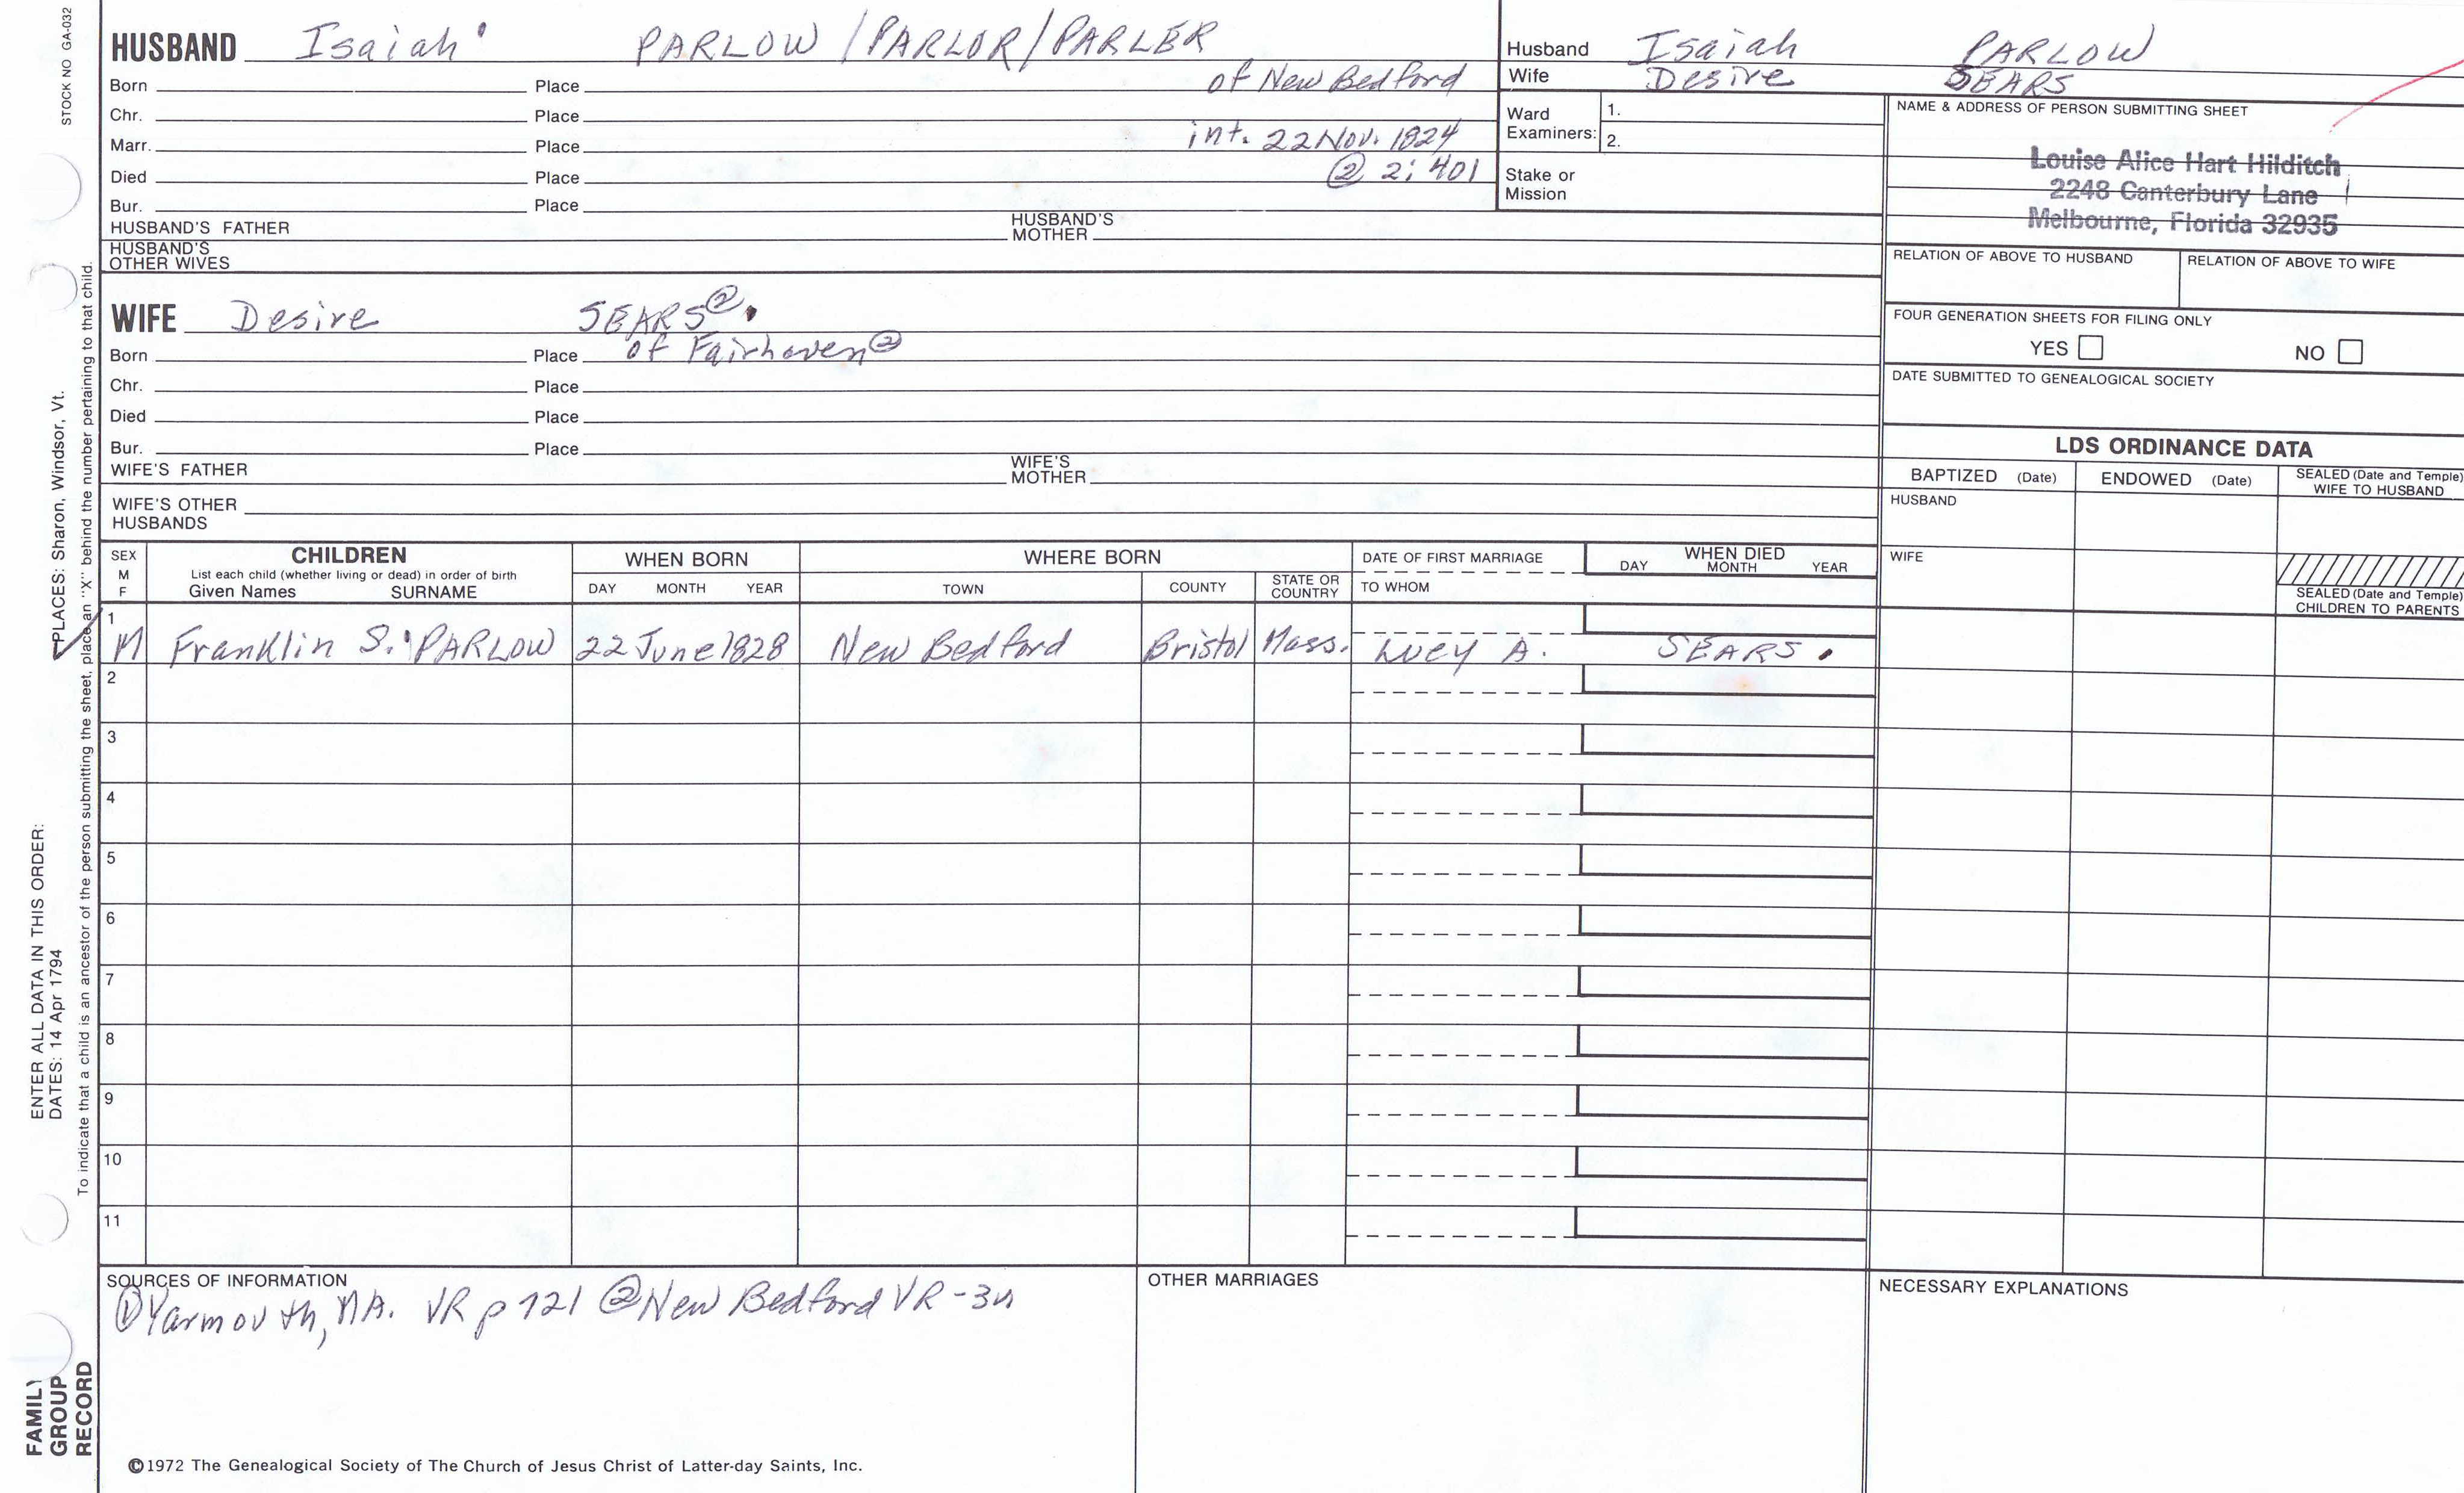 STOCK NO GA-032
HUSBAND Isaiah PARLOW / PARLOR / PARLER
Born Place of New Bedford
Chr. Place
Marr. Place int. 22 Nov. 1824
Died Place ② 2; 401
Bur. Place
HUSBAND'S FATHER HUSBAND'S MOTHER
HUSBAND'S OTHER WIVES
Husband Isaiah PARLOW
Wife Desire SEARS
Ward Examiners: 1.
2.
Stake or Mission
NAME & ADDRESS OF PERSON SUBMITTING SHEET
Louise Alice Hart Hilditch
2248 Canterbury Lane
Melbourne, Florida 32935
RELATION OF ABOVE TO HUSBAND RELATION OF ABOVE TO WIFE
FOUR GENERATION SHEETS FOR FILING ONLY
YES NO
DATE SUBMITTED TO GENEALOGICAL SOCIETY
WIFE Desire SEARS②
Born Place of Fairhaven②
Chr. Place
Died Place
Bur. Place
WIFE'S FATHER WIFE'S MOTHER
WIFE'S OTHER HUSBANDS
LDS ORDINANCE DATA
BAPTIZED (Date) ENDOWED (Date) SEALED (Date and Temple) WIFE TO HUSBAND
HUSBAND
WIFE
SEALED (Date and Temple)
CHILDREN TO PARENTS
SEX
M
F
CHILDREN
List each child (whether living or dead) in order of birth
Given Names SURNAME
WHEN BORN
DAY MONTH YEAR
WHERE BORN
TOWN COUNTY STATE OR COUNTRY
DATE OF FIRST MARRIAGE
TO WHOM
WHEN DIED
DAY MONTH YEAR
1
M Franklin S. PARLOW 22 June 1828 New Bedford Bristol Mass. Lucy A. SEARS.
2
3
4
5
6
7
8
9
10
11
SOURCES OF INFORMATION
① Yarmouth, MA. VR p 121 ② New Bedford VR -
OTHER MARRIAGES
NECESSARY EXPLANATIONS
©1972 The Genealogical Society of The Church of Jesus Christ of Latter-day Saints, Inc.
ENTER ALL DATA IN THIS ORDER:
DATES: 14 Apr 1794
PLACES: Sharon, Windsor, Vt.
To indicate that a child is an ancestor of the person submitting the sheet, place an "X" behind the number pertaining to that child.
FAMILY
GROUP
RECORD